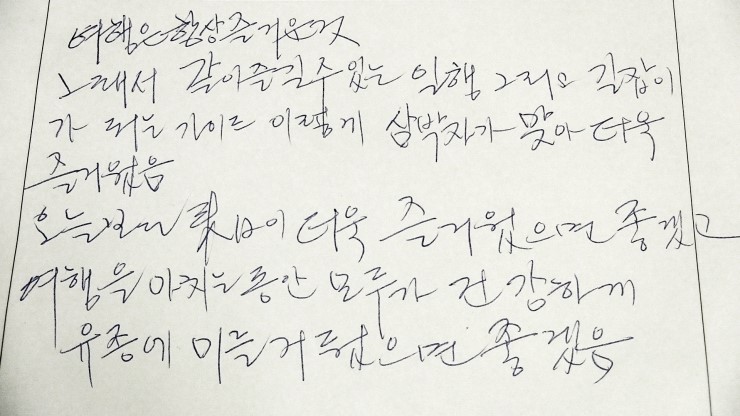 여행은 항상 즐거운것
그래서 같이즐길수있는 일행 그리고 길잡이
가 되는 가이드 이렇게 삼박자가 맞아 더욱
즐거웠음
오늘보다 來日이 더욱 즐거웠으면 좋겠고
여행을 마치는동안 모두가 건강하게
유종에 미를거뒀으면 좋겠음